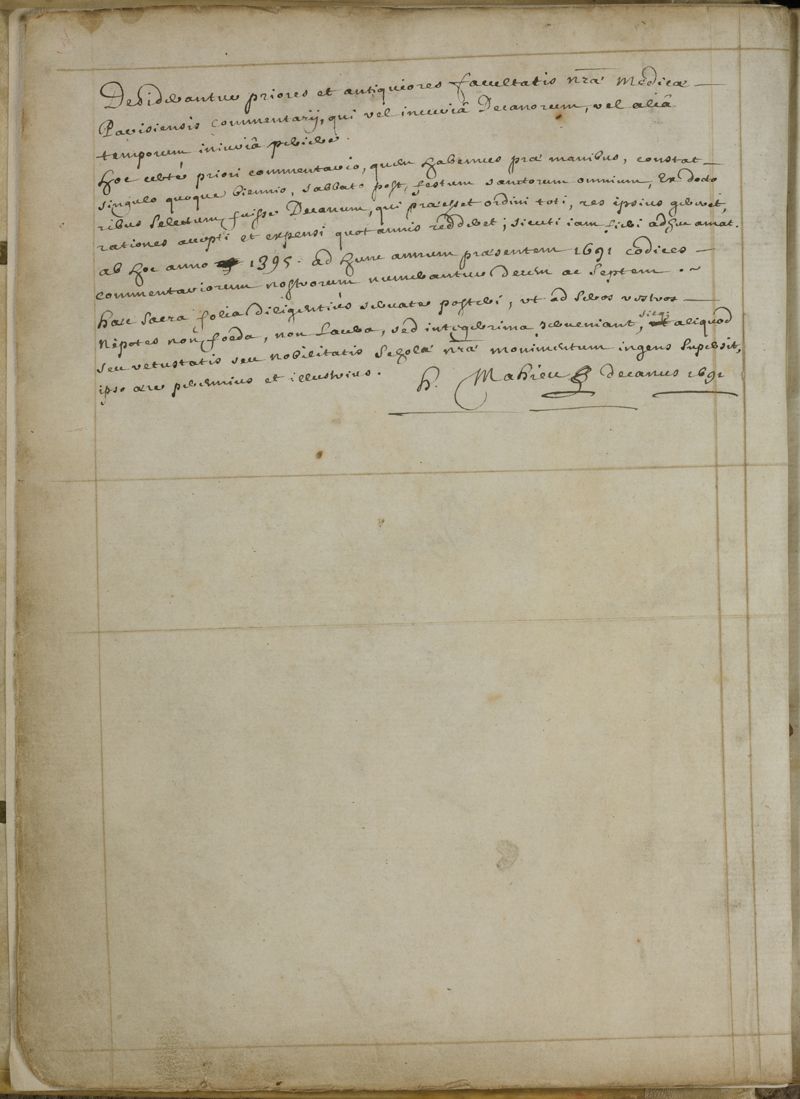 Desiderantur priores et antiquiores facultatis nrae Medicae
Parisiensis commentarij, qui vel incuriâ Decanorum, vel aliâ
temporum iniuriâ periere.
Hoc certè priori commentario, quem habemus prae manibus, constat
singulo quoque biennio, sabbato post festum sanctorum omnium, Ex docto
ribus selectum fuisse Decanum, qui praeesset ordini toti, res ipsius gereret,
rationes accepti et expensi quotannis redderet; sicuti iam fieri adhuc amat.
ab hoc anno 1395. ad hunc annum praesentem 1691 codices
commentariorum nostrorum numerantur Decem ac Septem.
Haec sacra folia diligentiùs servate posteri, vt ad seros vestros
Nepotes non foeda, non lacera, sed integerrima perveniant, sicq; aliquod
seu vetustatis seu nobilitatis scholae nrae monimentum ingens supersit,
ipso aere perennius et illustrius.
h. Mahieu Decanus 1691